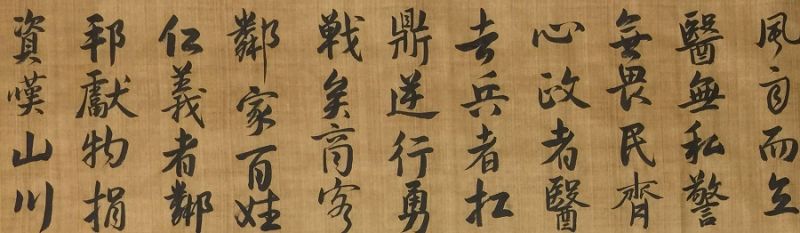 風首而立
醫無私警
無畏民齊
心政者醫
去兵者扛
鼎逆行勇
戰矣商客
鄰家百姓
仁義者鄰
邦獻物捐
資嘆山川